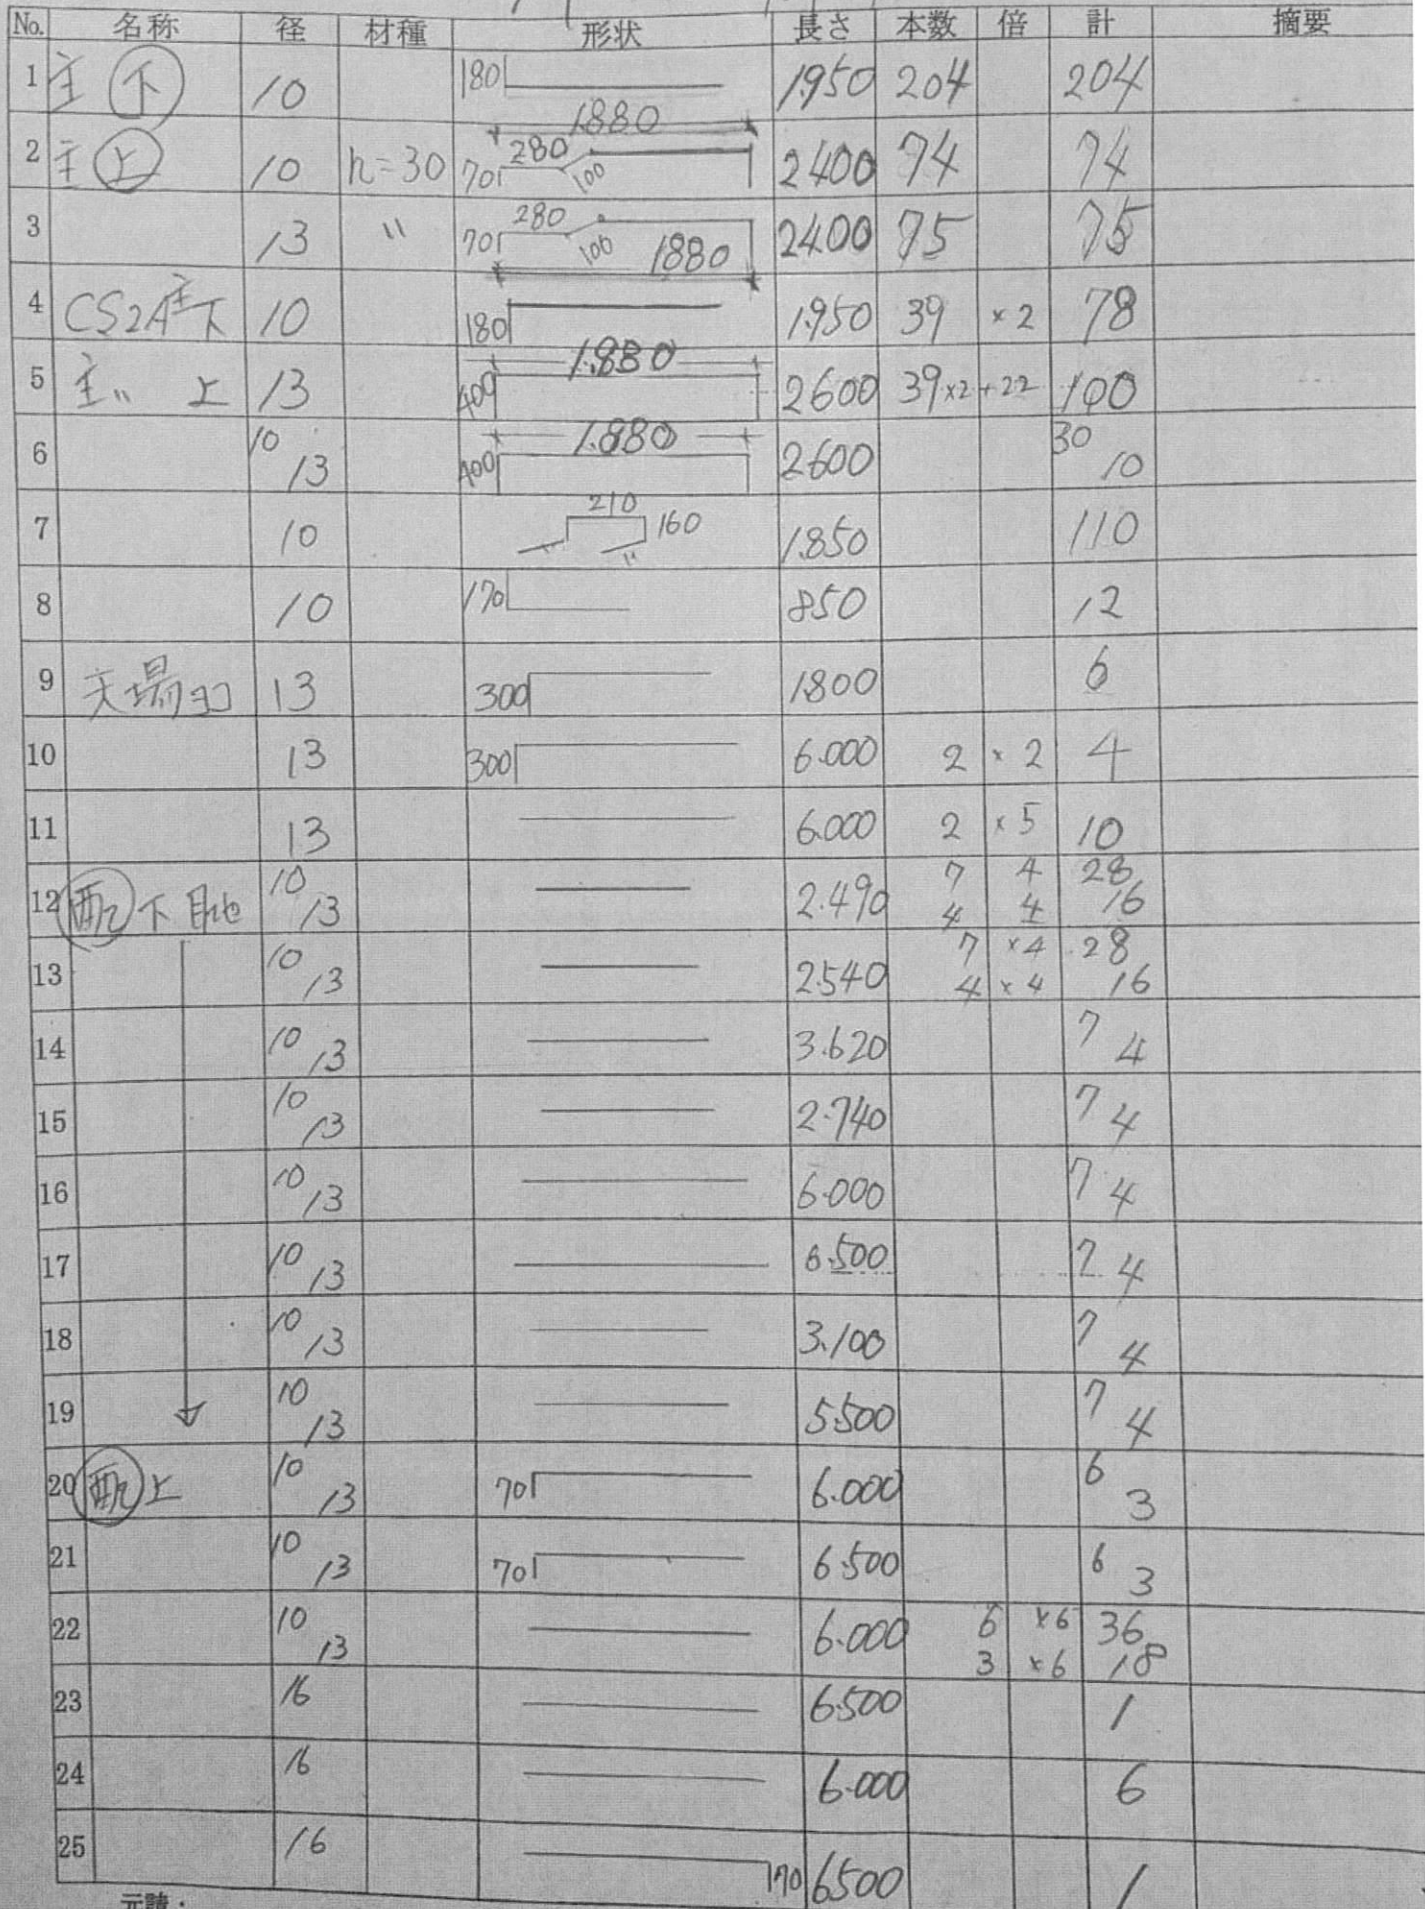 No. 名称 径 材種 形状 長さ 本数 倍 計 摘要
1 主 下 10 180 1.950 204 204
1.880
2 主 上 10 h=30 70 280 100 2400 74 74
3 13 〃 70 280 100 1880 2400 75 75
4 CS2A主下 10 180 1.950 39 ×2 78
1.880
5 主〃 上 13 400 2600 39 ×2 +22 100
1.880
6 10 13 400 2600 30 10
7 10 210 160 〃 1.850 110
8 10 170 850 12
9 天場ヨコ 13 300 1.800 6
10 13 300 6.000 2 × 2 4
11 13 6.000 2 × 5 10
12 配 下 10 13 2.490 7 4 28
4 4 16
13 10 13 2.540 7 ×4 28
4 × 4 16
14 10 13 3.620 7 4
15 10 13 2.740 7 4
16 10 13 6.000 7 4
17 10 13 6.500 7 4
18 10 13 3.100 7 4
19 10 13 5.500 7 4
20 配 上 10 13 70 6.000 6 3
21 10 13 70 6.500 6 3
22 10 13 6.000 6 ×6 36
3 ×6 18
23 16 6.500 1
24 16 6.000 6
25 16 170 6500 1
元請: